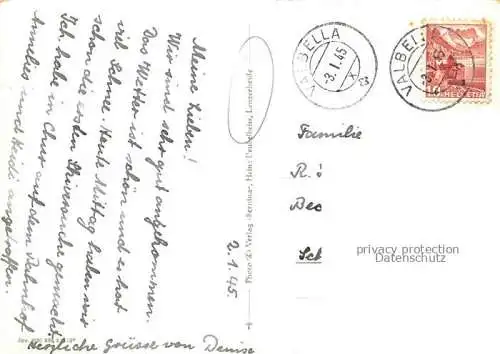 Meine Lieben!
Wir sind sehr gut angekommen.
Das Wetter ist schön und es hat
viel Schnee. Heute Mittag haben wir
schon die ersten Skiversuche gemacht.
Ich habe in Chur auf dem Bahnhof
Annelies und Heidi angetroffen.
Herzliche Grüsse von Denise
2.1.45
Photo & Verlag
Lenzerheide
VALBELLA
3.1.45
VALBEL
HELVETIA
Familie
R.
Bec
Sch
privacy protection
Datenschutz